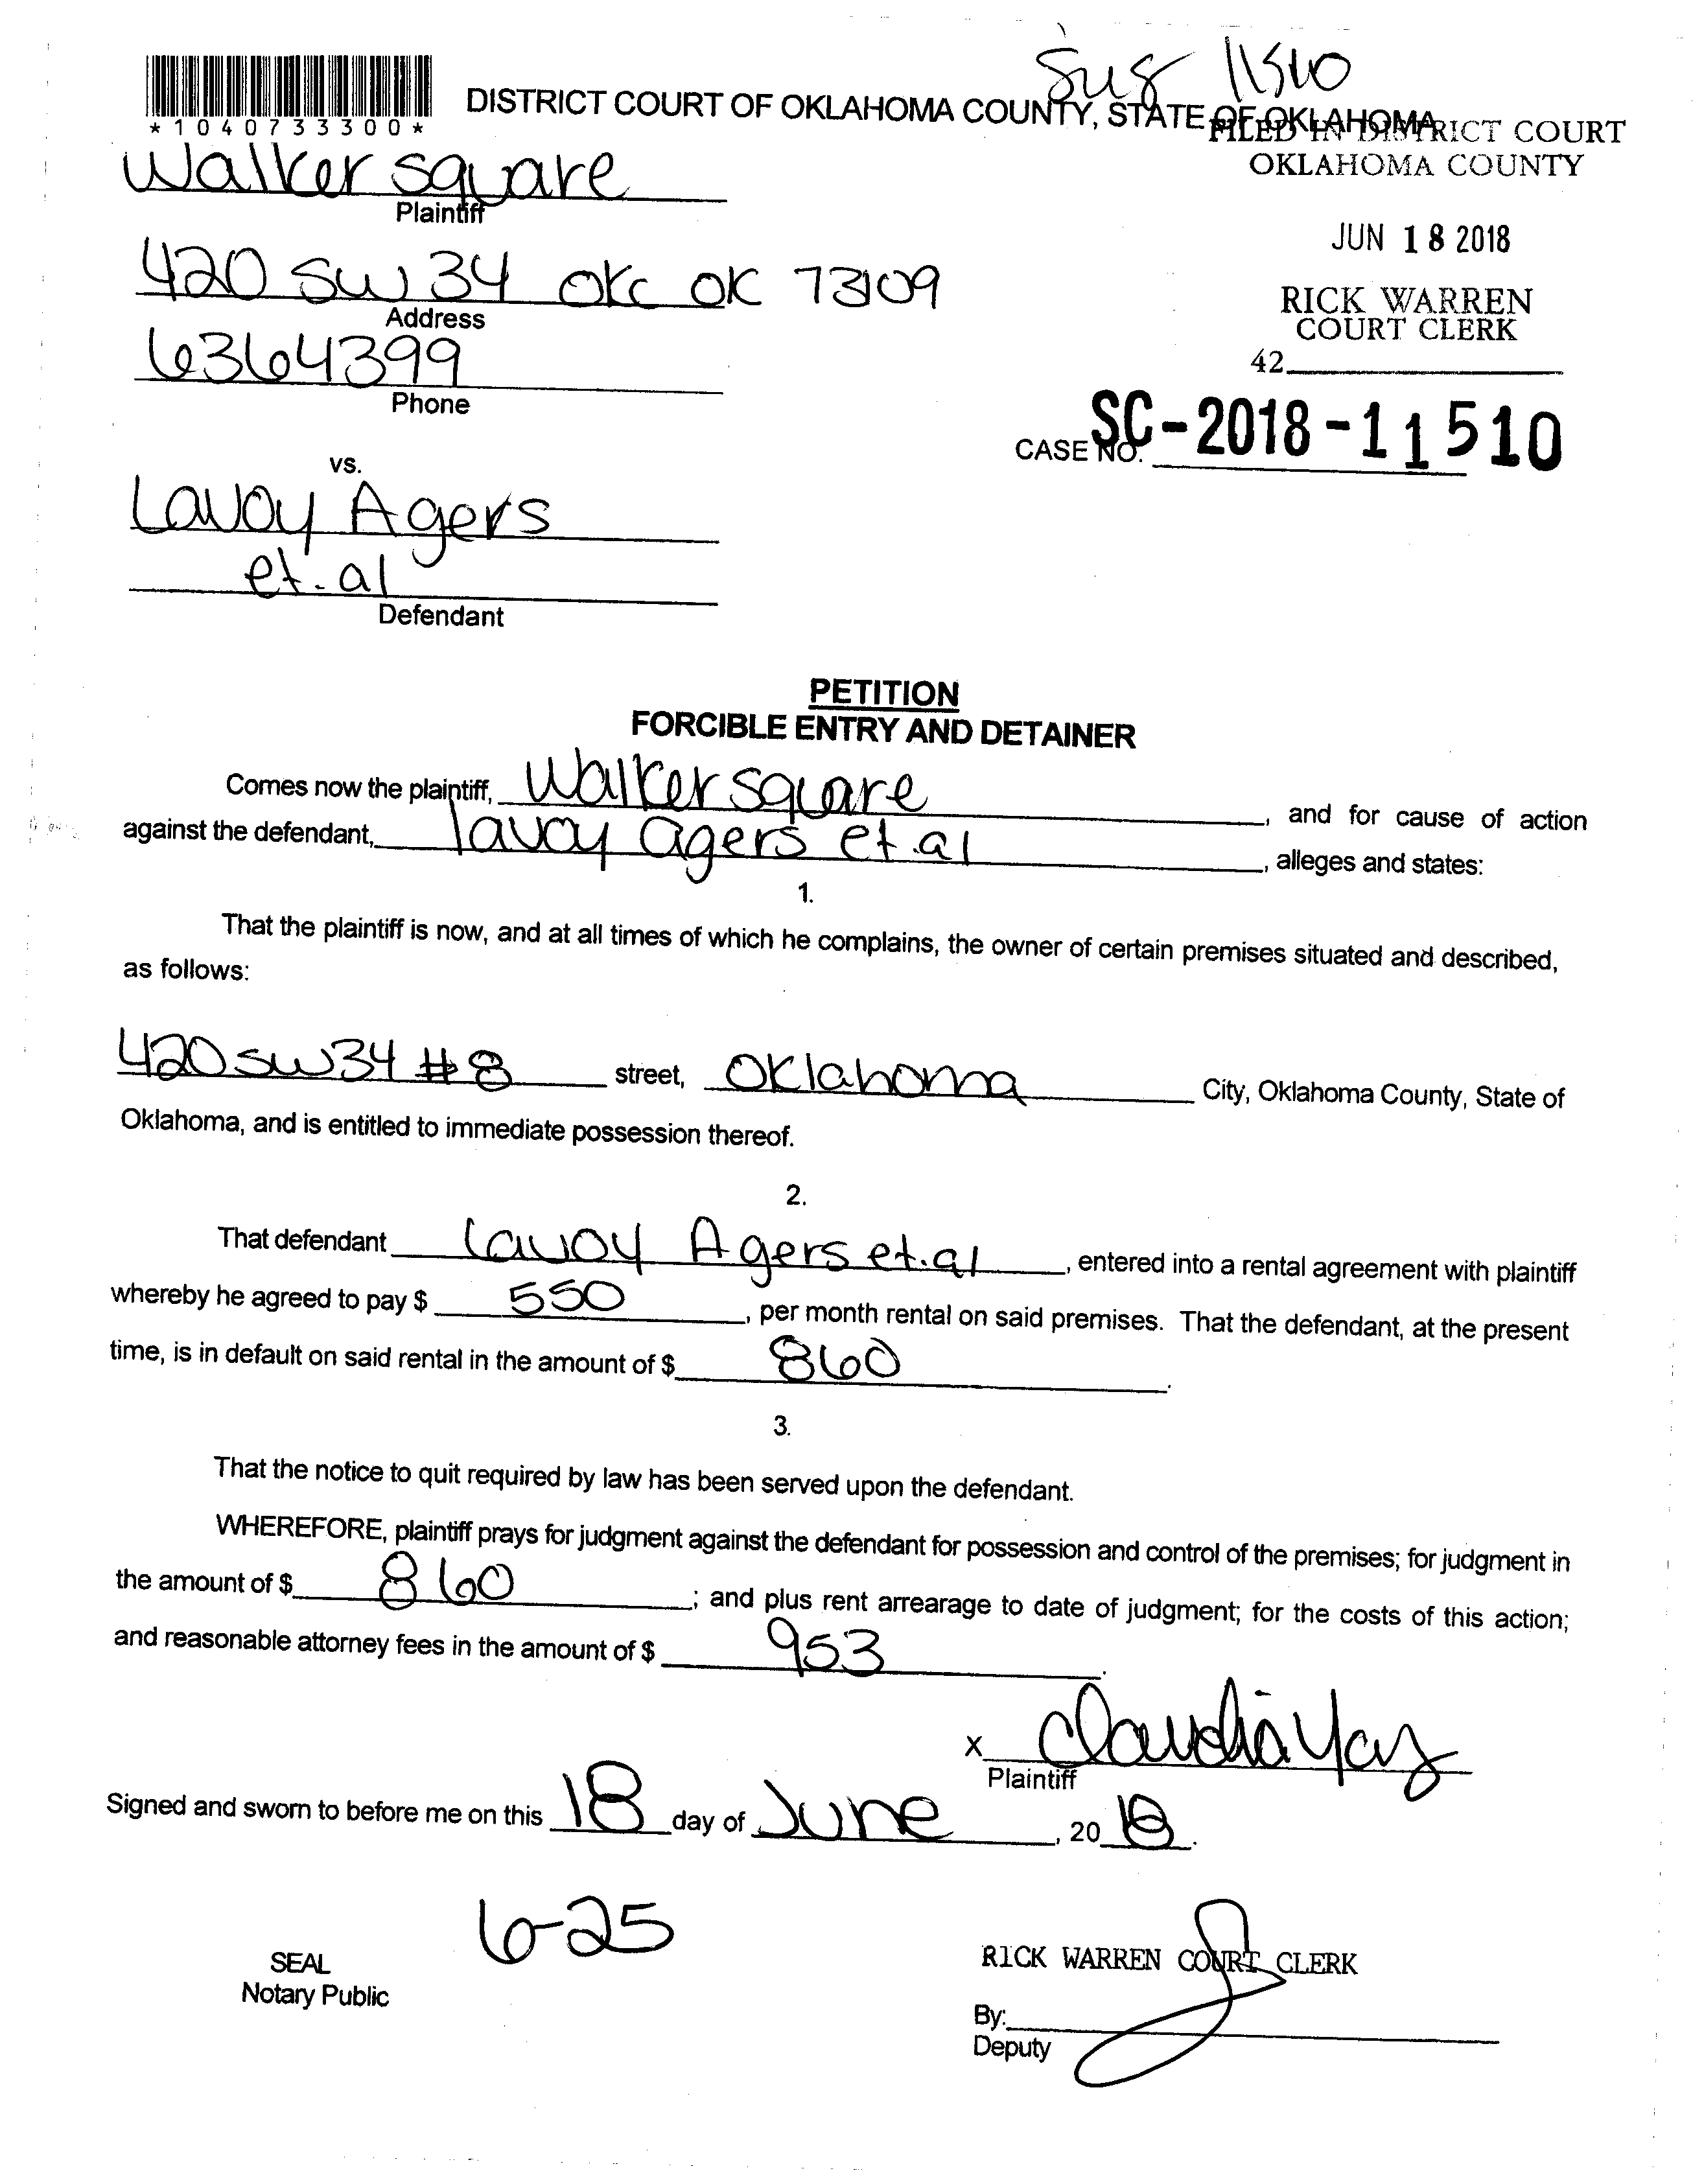 *1040733300*
DISTRICT COURT OF OKLAHOMA COUNTY, STATE OF OKLAHOMA
FILED IN DISTRICT COURT
OKLAHOMA COUNTY
JUN 18 2018
RICK WARREN
COURT CLERK
42
CASE NO. SC-2018-11510
Walker square
Plaintiff
420 SW 34 OKC OK 73109
Address
6364399
Phone
vs.
Lavoy Agers
et.al
Defendant
PETITION
FORCIBLE ENTRY AND DETAINER
Comes now the plaintiff, Walker square, and for cause of action
against the defendant, lavoy agers et.al, alleges and states:
1.
That the plaintiff is now, and at all times of which he complains, the owner of certain premises situated and described,
as follows:
420 SW 34 #8 street, Oklahoma City, Oklahoma County, State of
Oklahoma, and is entitled to immediate possession thereof.
2.
That defendant Lavoy Agers et.al, entered into a rental agreement with plaintiff
whereby he agreed to pay $ 550, per month rental on said premises. That the defendant, at the present
time, is in default on said rental in the amount of $ 860.
3.
That the notice to quit required by law has been served upon the defendant.
WHEREFORE, plaintiff prays for judgment against the defendant for possession and control of the premises; for judgment in
the amount of $ 860; and plus rent arrearage to date of judgment; for the costs of this action;
and reasonable attorney fees in the amount of $ 953.
x Claudia
Plaintiff
Signed and sworn to before me on this 18 day of June, 2018.
6-25
SEAL
Notary Public
RICK WARREN COURT CLERK
By:
Deputy